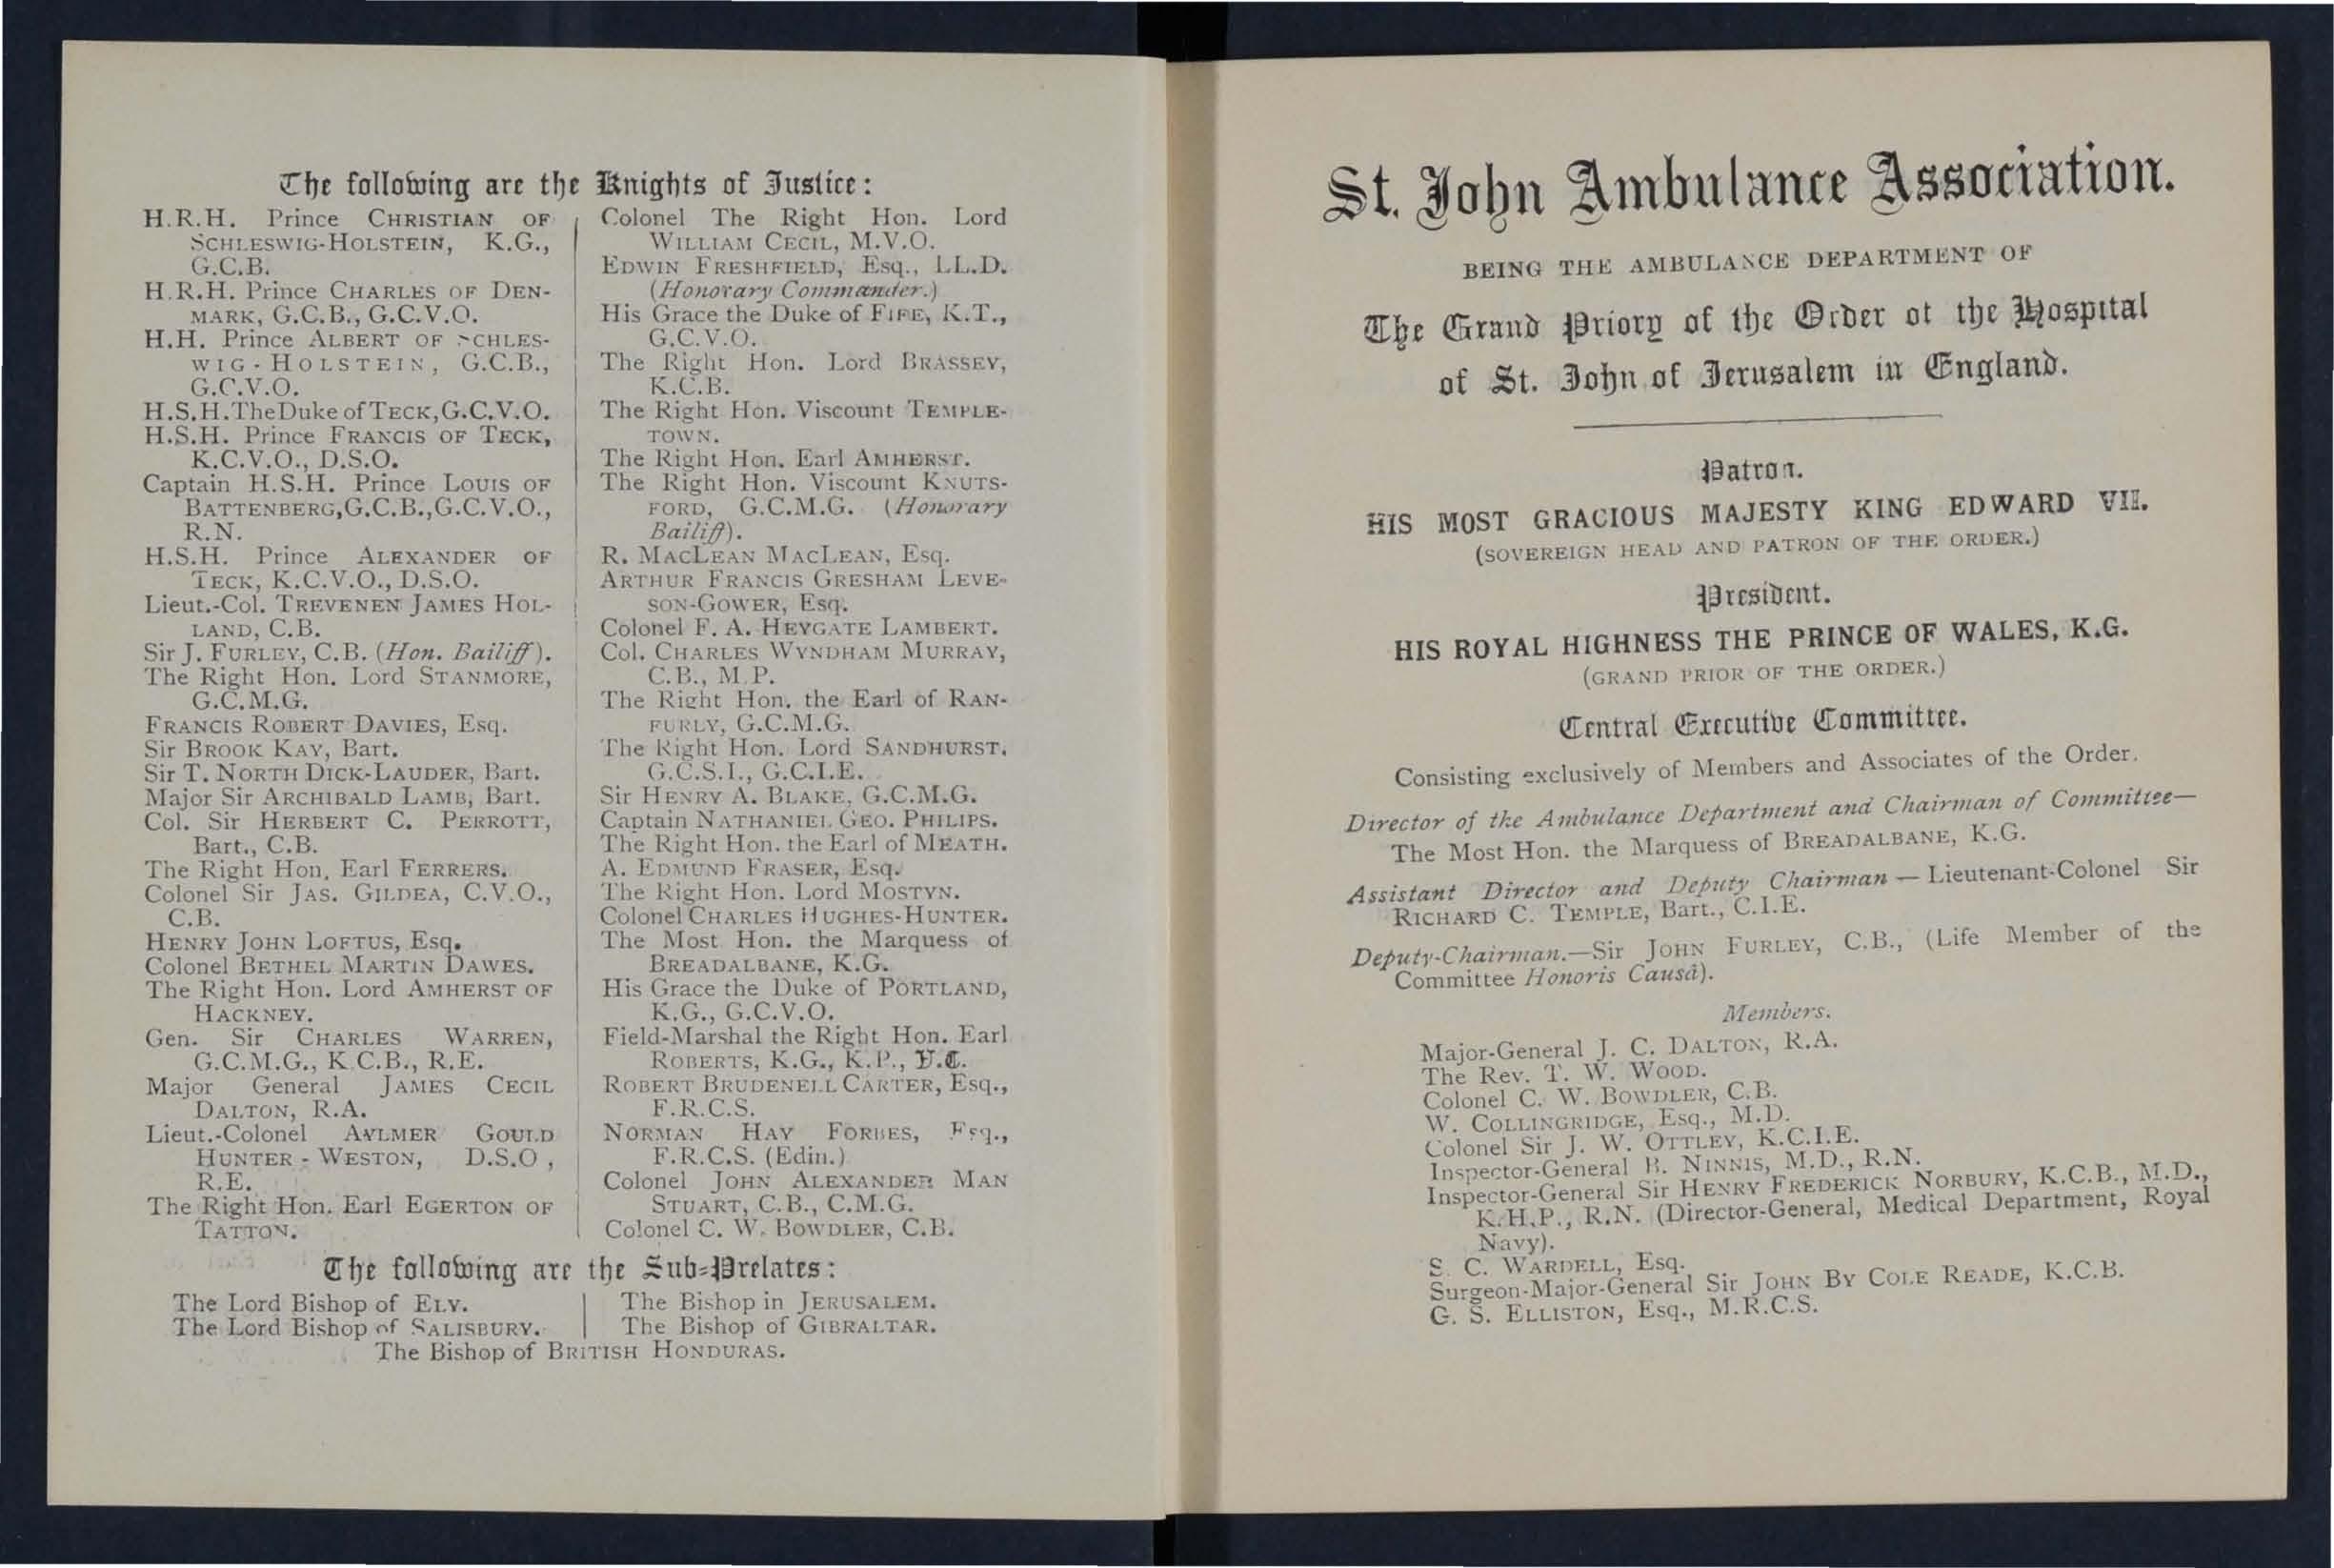 The following are the Knights of Justice:
H.R.H. Prince CHRISTIAN OF
SCHLESWIG-HOLSTEIN, K.G.,
G.C.B.
H.R.H. Prince CHARLES OF DEN-
MARK, G.C.B., G.C.V.O.
H.H. Prince ALBERT OF SCHLES-
WIG-HOLSTEIN, G.C.B.,
G.C.V.O.
H.S.H. The Duke of TECK, G.C.V.O.
H.S.H. Prince FRANCIS OF TECK,
K.C.V.O., D.S.O.
Captain H.S.H. Prince LOUIS OF
BATTENBERG, G.C.B., G.C.V.O.,
R.N.
H.S.H. Prince ALEXANDER OF
TECK, K.C.V.O., D.S.O.
Lieut.-Col. TREVENEN JAMES HOL-
LAND, C.B.
Sir J. FURLEY, C.B. (Hon. Bailiff).
The Right Hon. Lord STANMORE,
G.C.M.G.
FRANCIS ROBERT DAVIES, Esq.
Sir BROOK KAY, Bart.
Sir T. NORTH DICK-LAUDER, Bart.
Major Sir ARCHIBALD LAMB, Bart.
Col. Sir HERBERT C. PERROTT,
Bart., C.B.
The Right Hon. Earl FERRERS.
Colonel Sir JAS. GILDEA, C.V.O.,
C.B.
HENRY JOHN LOFTUS, Esq.
Colonel BETHEL MARTIN DAWES.
The Right Hon. Lord AMHERST OF
HACKNEY.
Gen. Sir CHARLES WARREN,
G.C.M.G., K.C.B., R.E.
Major General JAMES CECIL
DALTON, R.A.
Lieut.-Colonel AYLMER GOULD
HUNTER-WESTON, D.S.O,
R.E.
The Right Hon. Earl EGERTON OF
TATTON.
Colonel The Right Hon. Lord
WILLIAM CECIL, M.V.O.
EDWIN FRESHFIELD, Esq., LL.D.
(Honorary Commander.)
His Grace the Duke of FIFE, K.T.,
G.C.V.O.
The Right Hon. Lord BRASSEY,
K.C.B.
The Right Hon. Viscount TEMPLE-
TOWN.
The Right Hon. Earl AMHERST.
The Right Hon. Viscount KNUTS-
FORD, G.C.M.G. (Honorary
Bailiff).
R. MACLEAN MACLEAN, Esq.
ARTHUR FRANCIS GRESHAM LEVE-
SON-GOWER, Esq.
Colonel F. A. HEYGATE LAMBERT.
Col. CHARLES WYNDHAM MURRAY,
C.B., M.P.
The Right Hon. the Earl of RAN-
FURLY, G.C.M.G.
The Right Hon. Lord SANDHURST,
G.C.S.I., G.C.I.E.
Sir HENRY A. BLAKE, G.C.M.G.
Captain NATHANIEL GEO. PHILIPS.
The Right Hon. the Earl of MEATH.
A. EDMUND FRASER, Esq.
The Right Hon. Lord MOSTYN.
Colonel CHARLES HUGHES-HUNTER.
The Most Hon. the Marquess of
BREADALBANE, K.G.
His Grace the Duke of PORTLAND,
K.G., G.C.V.O.
Field-Marshal the Right Hon. Earl
ROBERTS, K.G., K.P., V.C.
ROBERT BRUDENELL CARTER, Esq.,
F.R.C.S.
NORMAN HAY FORBES, Esq.,
F.R.C.S. (Edin.)
Colonel JOHN ALEXANDER MAN
STUART, C.B., C.M.G.
Colonel C. W. BOWDLER, C.B.
The following are the Sub-Prelates:
The Lord Bishop of ELY.
The Lord Bishop of SALISBURY.
The Bishop in JERUSALEM.
The Bishop of GIBRALTAR.
The Bishop of BRITISH HONDURAS.
St. John Ambulance Association.
BEING THE AMBULANCE DEPARTMENT OF
The Grand Priory of the Order of the Hospital
of St. John of Jerusalem in England.
Patron.
HIS MOST GRACIOUS MAJESTY KING EDWARD VII.
(SOVEREIGN HEAD AND PATRON OF THE ORDER.)
President.
HIS ROYAL HIGHNESS THE PRINCE OF WALES, K.G.
(GRAND PRIOR OF THE ORDER.)
Central Executive Committee.
Consisting exclusively of Members and Associates of the Order.
Director of the Ambulance Department and Chairman of Committee—
The Most Hon. the Marquess of BREADALBANE, K.G.
Assistant Director and Deputy Chairman — Lieutenant-Colonel Sir
RICHARD C. TEMPLE, Bart., C.I.E.
Deputy-Chairman.—Sir JOHN FURLEY, C.B., (Life Member of the
Committee Honoris Causâ).
Members.
Major-General J. C. DALTON, R.A.
The Rev. T. W. WOOD.
Colonel C. W. BOWDLER, C.B.
W. COLLINGRIDGE, Esq., M.D.
Colonel Sir J. W. OTTLEY, K.C.I.E.
Inspector-General B. NINNIS, M.D., R.N.
Inspector-General Sir HENRY FREDERICK NORBURY, K.C.B., M.D.,
K.H.P., R.N. (Director-General, Medical Department, Royal
Navy).
S. C. WARDELL, Esq.
Surgeon-Major-General Sir JOHN BY COLE READE, K.C.B.
G. S. ELLISTON, Esq., M.R.C.S.